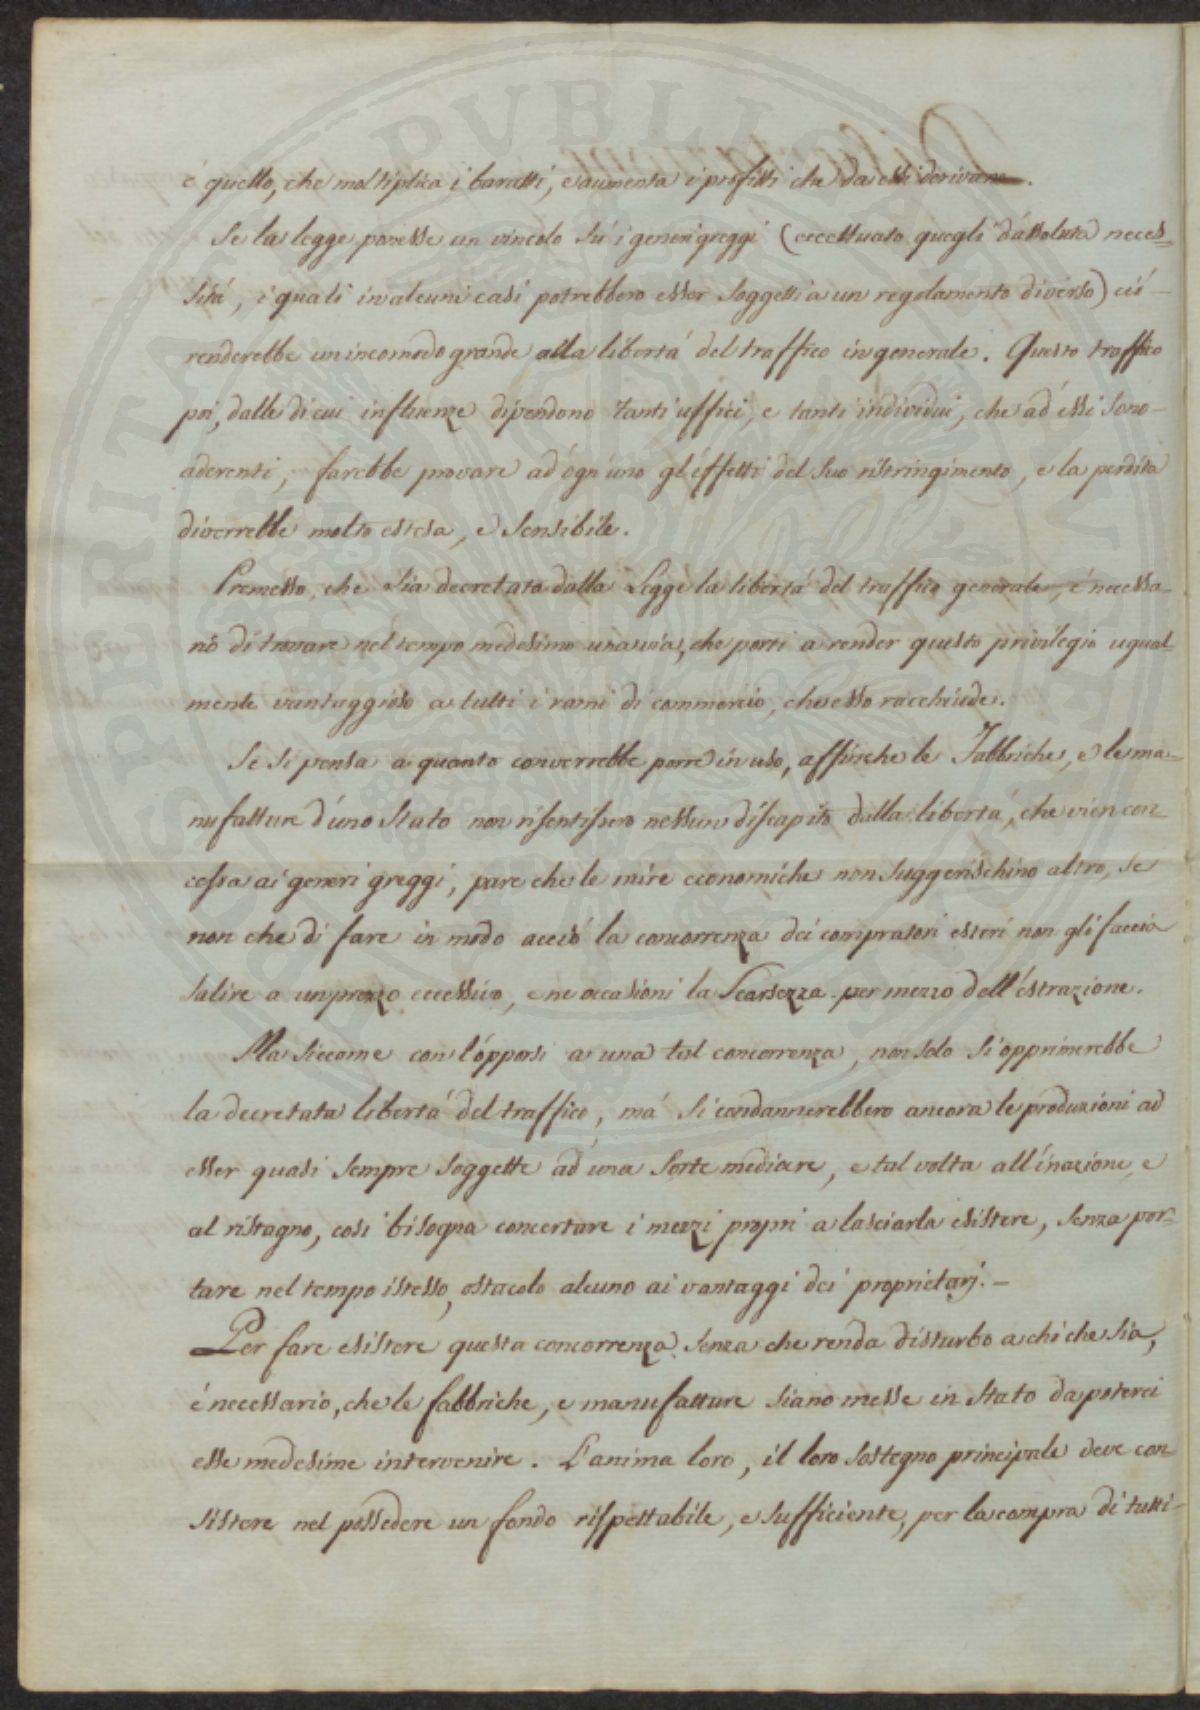 é quello, che moltiplica i baratti, e aumenta i profitti che da essi derivano.
Se la legge ponesse un vincolo sú i generi greggi (eccettuato quegli d'assoluta neces=
sitá, i quali in alcuni casi potrebbero esser soggetti a un regolamento diverso) ció
renderebbe un incomodo grande alla libertá del traffico in generale. Questo traffico
poi, dalle di cui influenze dipendono tanti uffici, e tanti individui, che ad essi sono
aderenti, farebbe provare ad ógn'uno gl'éffetti del suo ristringimento, e la perdita
diverrebbe molto estesa, e sensibile.
Premesso, che sia decretata dalla Legge la libertá del traffico generale, é necessa-
rió di trovare nel tempo medesimo una via, che porti a render questo privilegio ugual=
mente vantaggioso a tutti i rami di commercio, che esso racchiude.
Se si pensa a quanto converrebbe porre in uso, affinche le Fabbriche, e le ma=
nufatture d'uno Stato non risentissero nessun discapito dalla libertá, che vien con
cessa ai generi greggi, pare che le mire economiche non suggerischino altro, se
non che di fare in modo acció la concorrenza dei compratori esteri non gli faccia
salire a un prezzo eccessivo, e ne occasioni la Scarsezza per mezzo dell'éstrazione.
Ma siccome con l'ópporsi a una tal concorrenza, non solo si opprimerebbe
la decretata libertá del traffico, má si condannerebbero ancora le produzioni ad
esser quasi sempre soggette ad una sorte mediocre, e tal volta all'ínazione, e
al ristagno, cosi bisogna concertare i mezzi propri a lasciarla esistere, senza por=
tare nel tempo istesso, ostacolo alcuno ai vantaggi dei proprietarj.-
Per fare esistere questa concorrenza senza che renda disturbo a chi che sia,
é necessario, che le fabbriche, e manufatture siano messe in stato da poterci
esse medesime intervenire. L'anima loro, il loro sostegno principale deve con
sistere nel possedere un fondo rispettabile, e sufficiente, per la compra di tutti